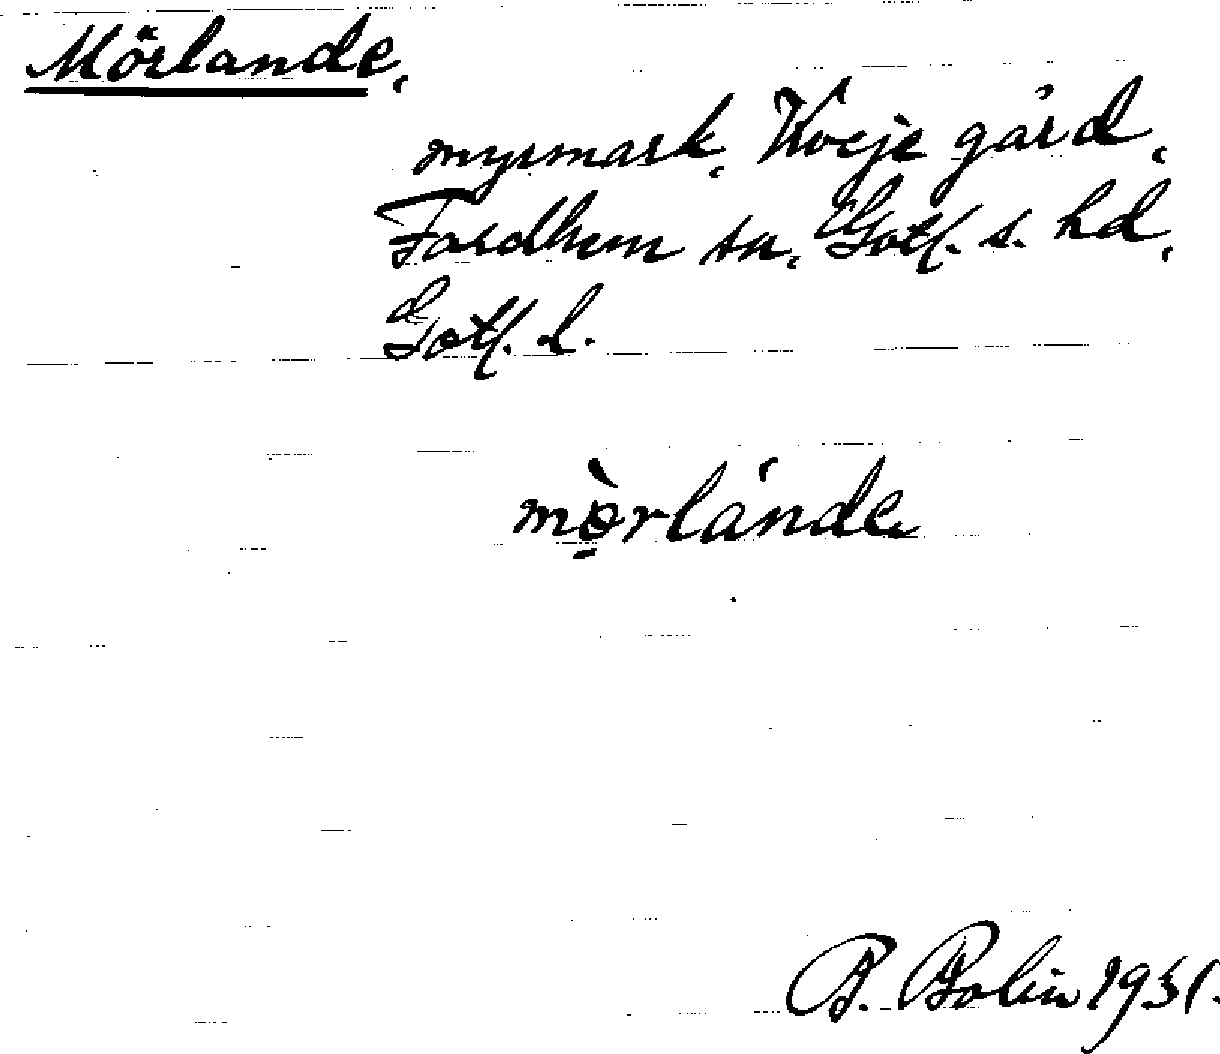 Mörlande,
myrmark, Kvie gård,
Fardhem sn, Gotl. s. hd,
Gotl. l.
mò̱rlánde
B. Bolin 1931.